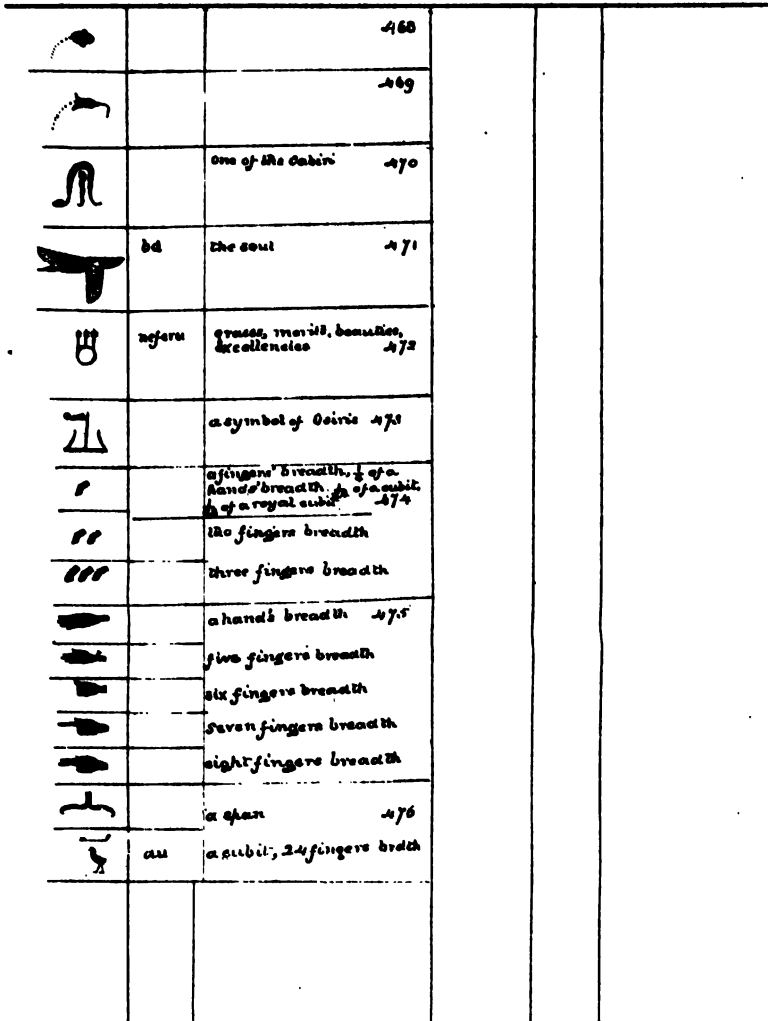 468
469
one of the Cabiri 470
bd the soul 471
neferu graces, merits, beauties,
excellencies 472
a symbol of Osiris 473
a fingers' breadth, of a
hands' breadth of a cubit,
of a royal cubit 474
two fingers breadth
three fingers breadth
a hand's breadth 475
five fingers breadth
six fingers breadth
seven fingers breadth
eight fingers breadth
a span 476
au a cubit, 24 fingers brdth